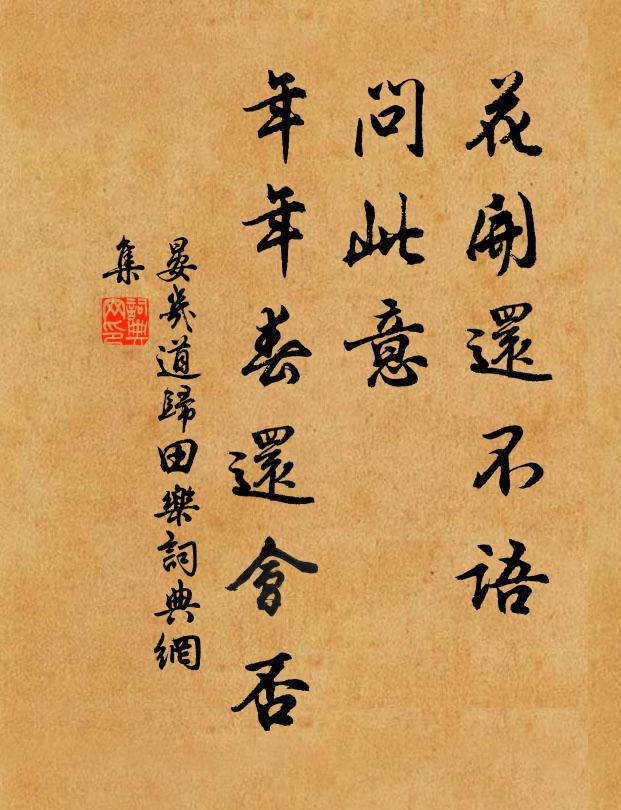 花開還不語
問此意
年年春還會否
晏幾道歸田樂詞典網
集
詞典網印